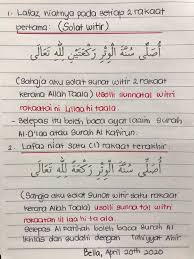 1. Lafaz niatnya pada setiap 2 rakaat
pertama: (Solat witir)
أُصَلِّى سُنَّةَ الْوِتْرِ رَكْعَتَيْنِ لِلَّهِ تَعَالَى
(Sahaja aku solat sunat witir 2 rakaat
kerana Allah Taala) usolli sunnatal witri
rakaataini lillaahi ta'ala.
- Selepas itu boleh baca ayat lazim surah
Al-A'laa atau Surah Al Kafirun.
2. Lafaz niat satu (1) rakaat terakhir:
أُصَلِّى سُنَّةَ الْوِتْرِ رَكْعَةً لِلَّهِ تَعَالَى
(Sahaja aku solat sunat witir satu rakaat
kerana Allah Taala) usolli sunnatal witri
rakaatan lillaahi ta'ala.
Selepas Al Fatihah boleh baca Surah Al
Ikhlas dan sudahi dengan Tahiyyat Akhir
Bella, April 20th 2020